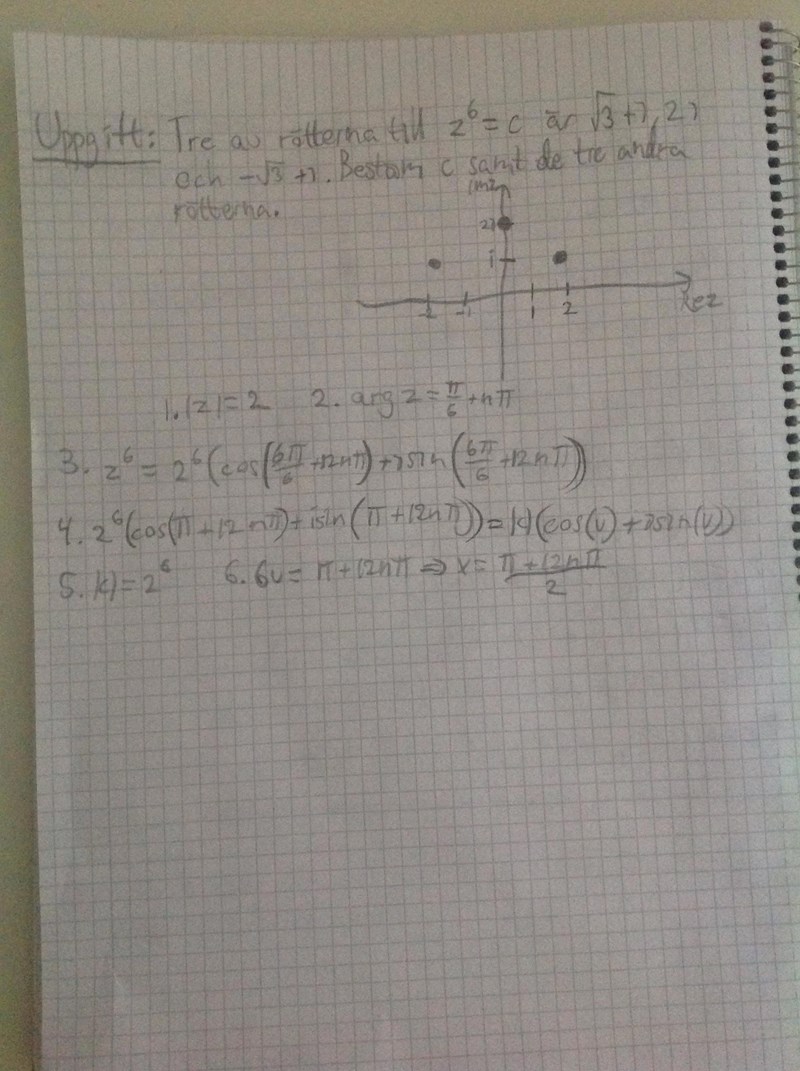 Uppgift: Tre av rötterna till z⁶ = c är √3 + i, 2i
och -√3 + i. Bestäm c samt de tre andra
rötterna.
Imz
2i
i
-2 -1 1 2 Rez
1. |z| = 2 2. arg z = π/6 + nπ
3. z⁶ = 2⁶(cos(6π/6 + 12nπ) + isin(6π/6 + 12nπ))
4. 2⁶(cos(π + 12nπ) + isin(π + 12nπ)) = |c|(cos(v) + isin(v))
5. |c| = 2⁶ 6. 6v = π + 12nπ ⇒ x = (π + 12nπ)/2